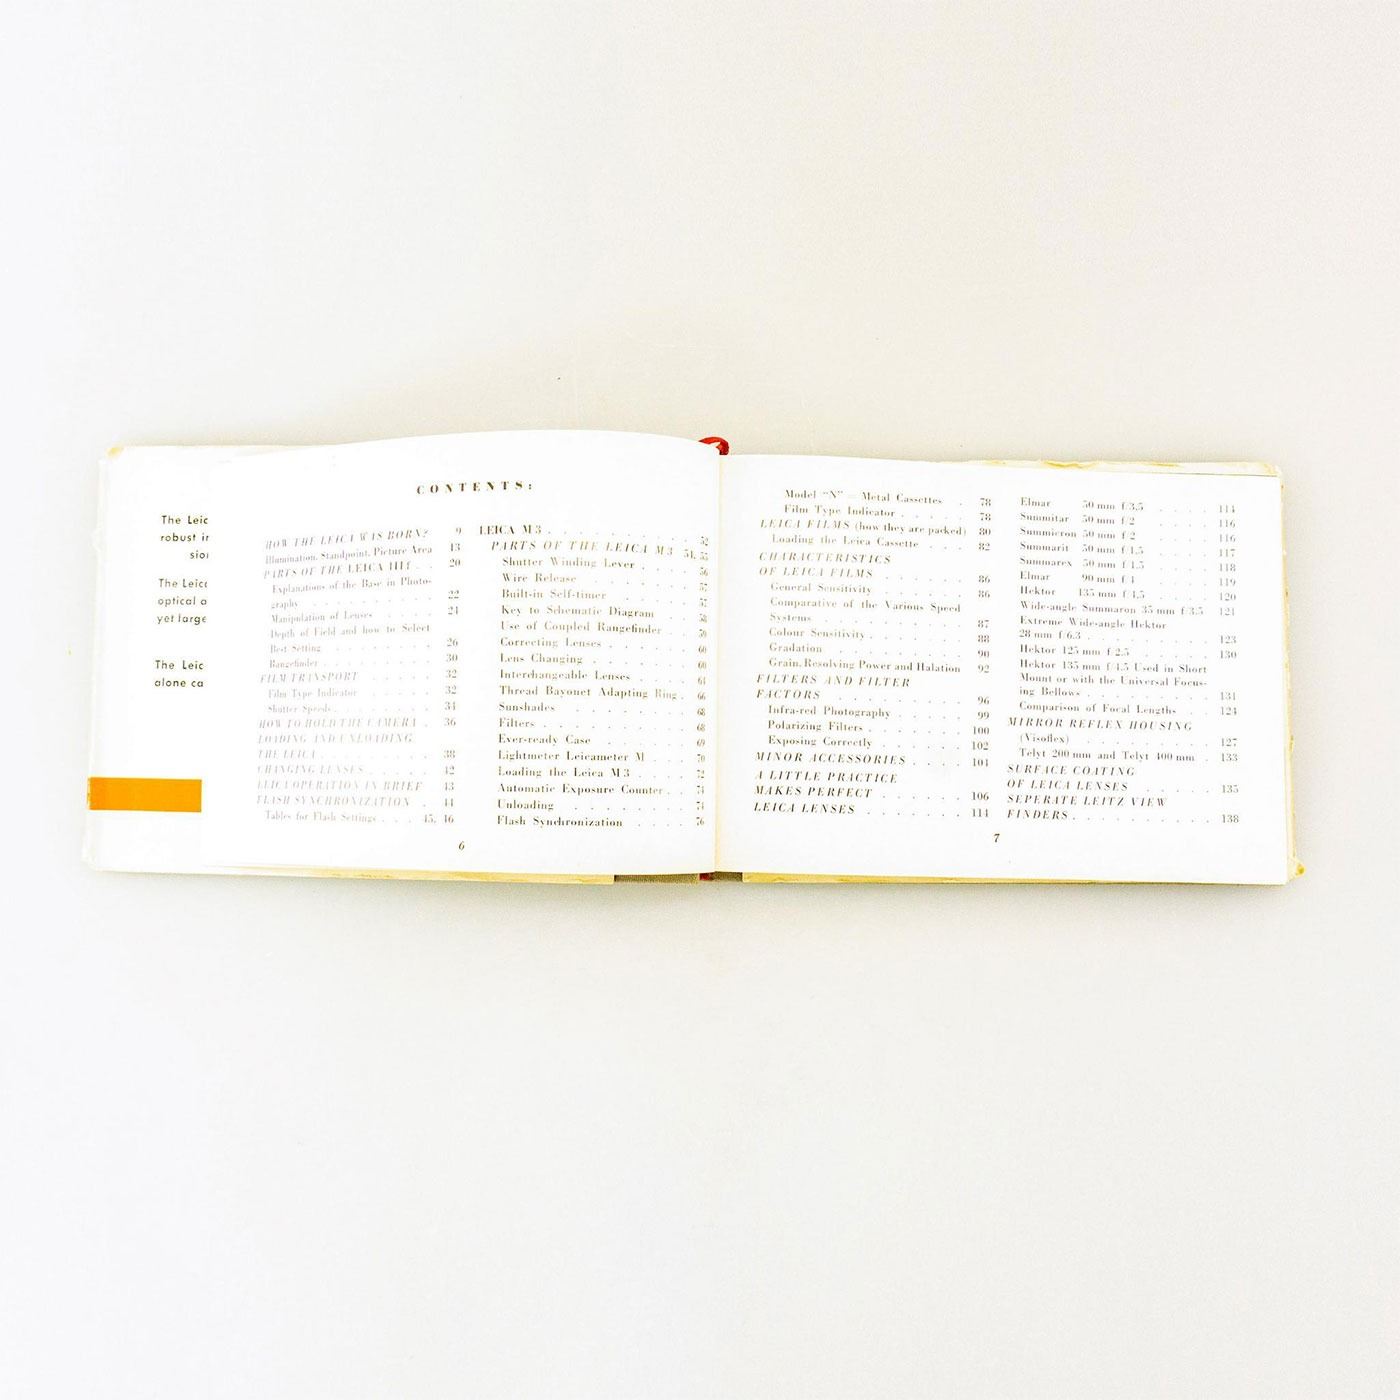 The Leic
robust in
sion
The Leica
optical a
yet large
The Leic
alone ca
CONTENTS:
HOW THE LEICA WAS BORN? 9
Illumination, Standpoint, Picture Area 13
PARTS OF THE LEICA IIIf . . 20
Explanations of the Base in Photo-
graphy . . . . . . . . . . 22
Manipulation of Lenses . . . . 24
Depth of Field and how to Select
Best Setting . . . . . . . . 26
Rangefinder . . . . . . . . 30
FILM TRANSPORT . . . . . 32
Film Type Indicator . . . . . 32
Shutter Speeds . . . . . . . 34
HOW TO HOLD THE CAMERA . 36
LOADING AND UNLOADING
THE LEICA . . . . . . . . 38
CHANGING LENSES . . . . . 42
LEICA OPERATION IN BRIEF 43
FLASH SYNCHRONIZATION . 44
Tables for Flash Settings . . . 45, 46
LEICA M3 . . . . . . . . . . 52
PARTS OF THE LEICA M3 54, 55
Shutter Winding Lever . . . . 56
Wire Release . . . . . . . 57
Built-in Self-timer . . . . . 57
Key to Schematic Diagram . . . 58
Use of Coupled Rangefinder . . . 59
Correcting Lenses . . . . . . 60
Lens Changing . . . . . . . 60
Interchangeable Lenses . . . . 64
Thread Bayonet Adapting Ring . 66
Sunshades . . . . . . . . 68
Filters . . . . . . . . . . 68
Ever-ready Case . . . . . . 69
Lightmeter Leicameter M . . . 70
Loading the Leica M3 . . . . 72
Automatic Exposure Counter . . 74
Unloading . . . . . . . . 74
Flash Synchronization . . . . 76
6
Model "N" = Metal Cassettes . 78
Film Type Indicator . . . . . 78
LEICA FILMS (how they are packed) 80
Loading the Leica Cassette . . . 82
CHARACTERISTICS
OF LEICA FILMS . . . . . . 86
General Sensitivity . . . . . . 86
Comparative of the Various Speed
Systems . . . . . . . . . 87
Colour Sensitivity . . . . . . 88
Gradation . . . . . . . . . 90
Grain, Resolving Power and Halation 92
FILTERS AND FILTER
FACTORS . . . . . . . . . 96
Infra-red Photography . . . . . 99
Polarizing Filters . . . . . . . 100
Exposing Correctly . . . . . . 102
MINOR ACCESSORIES . . . . 104
A LITTLE PRACTICE
MAKES PERFECT . . . . . . 106
LEICA LENSES . . . . . . . 114
Elmar 50 mm f/3,5 . . . . 114
Summitar 50 mm f/2 . . . . . 116
Summicron 50 mm f/2 . . . . . 116
Summarit 50 mm f/1,5 . . . . 117
Summarex 50 mm f/1,5 . . . . 118
Elmar 90 mm f/4 . . . . . 119
Hektor 135 mm f/4,5 . . . . 120
Wide-angle Summaron 35 mm f/3.5 121
Extreme Wide-angle Hektor
28 mm f/6.3 . . . . . . . . 123
Hektor 125 mm f/2.5 . . . . . 130
Hektor 135 mm f/4.5 Used in Short
Mount or with the Universal Focus-
ing Bellows . . . . . . . . 131
Comparison of Focal Lengths . . 124
MIRROR REFLEX HOUSING
(Visoflex) . . . . . . . . . 127
Telyt 200 mm and Telyt 400 mm . 133
SURFACE COATING
OF LEICA LENSES . . . . . 135
SEPERATE LEITZ VIEW
FINDERS . . . . . . . . . . 138
7